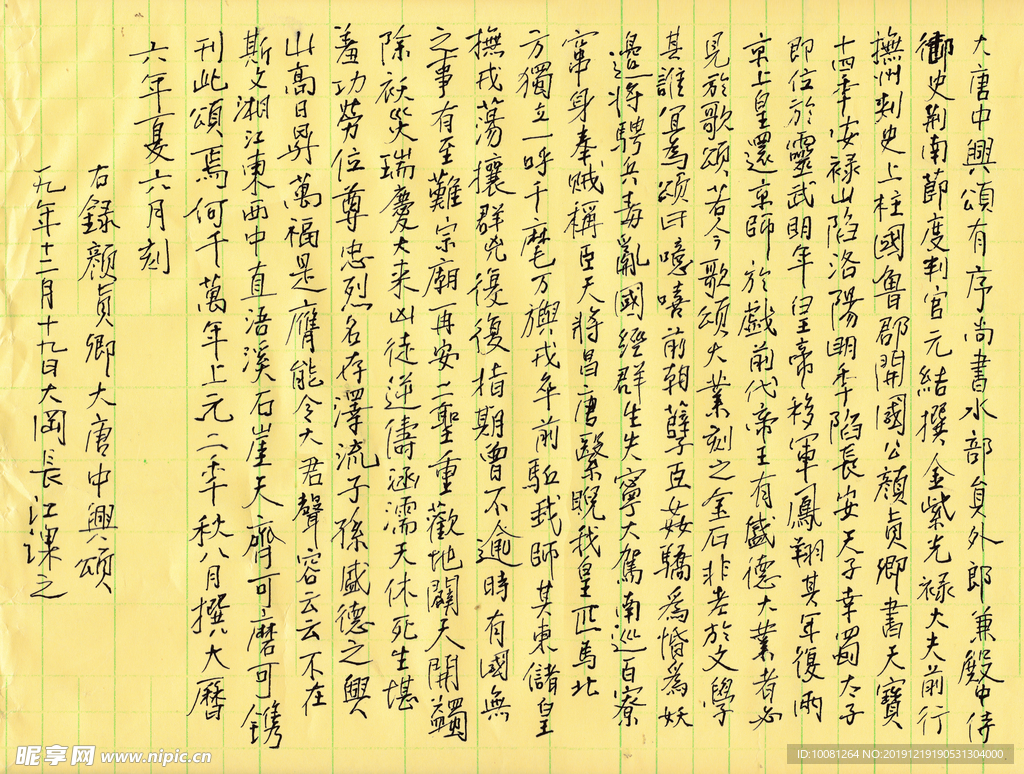 大唐中興頌有序尚書水部員外郎兼殿中侍
御史荆南節度判官元結撰金紫光禄大夫前行
撫州刺史上柱國魯郡開國公顔真卿書天寶
十四年安禄山陷洛陽明年陷長安天子幸蜀太子
即位於靈武明年皇帝移軍鳳翔其年復兩
京上皇還京師於戲前代帝王有盛德大業者必
見於歌頌若今歌頌大業刻之金石非老於文學
其誰宜為頌曰噫嘻前朝孽臣姦驕為惛為妖
邊將騁兵毒亂國經群生失寧大駕南巡百寮
竄身奉賊稱臣天將昌唐繄睨我皇匹馬北
方獨立一呼千麾万旟戎卒前駈我師其東儲皇
撫戎蕩攘群兇復復指期曾不逾時有國無
之事有至難宗廟再安二聖重歡地闢天開蠲
除祅災瑞慶大来凶徒逆儔涵濡天休死生堪
羞功勞位尊忠烈名存澤流子孫盛德之興
山高日昇萬福是膺能令大君聲容云云不在
斯文湘江東西中直浯溪石崖天齊可磨可鐫
刊此頌焉何千萬年上元二年秋八月撰大曆
六年夏六月刻
右録顔真卿大唐中興頌
一九年十二月十九日大岡長江課之
昵享网 www.nipic.cn
ID:10081264 NO:20191219190531304000